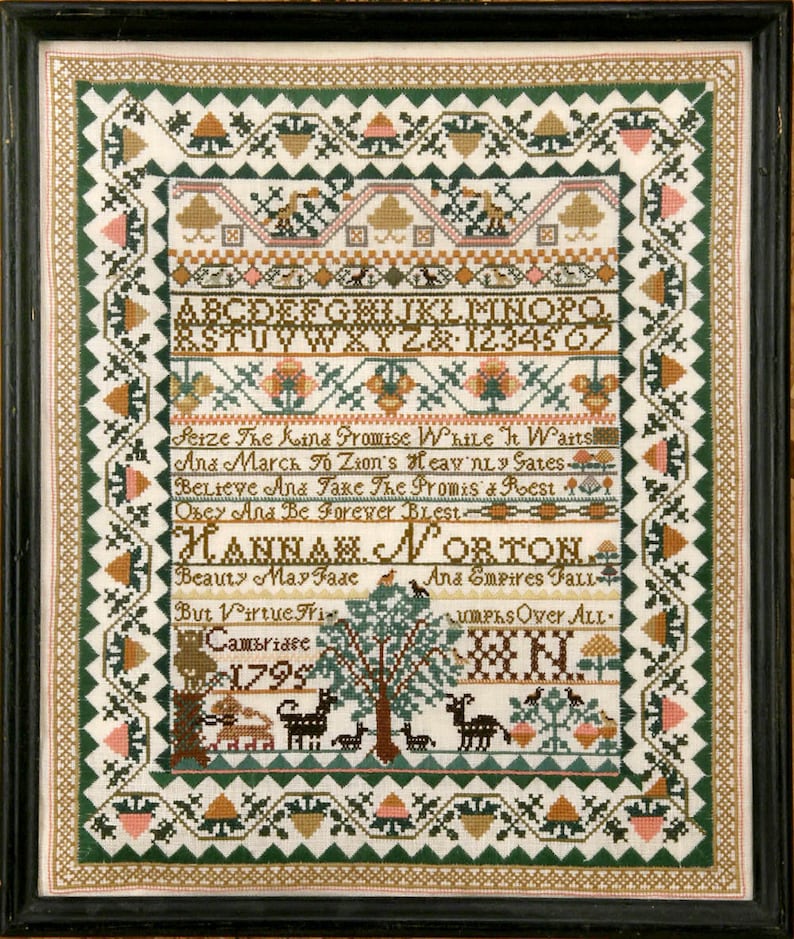 ABCDEFGHIJKLMNOPQ
RSTUVWXYZ&·1234567
Seize The Kind Promise While It Waits
And March To Zion's Heav'nly Gates
Believe And Take The Promis'd Rest
Obey And Be Forever Blest
Hannah Norton
Beauty May Fade And Empires Fall
But Virtue Triumphs Over All.
Cambridge HN.
1795